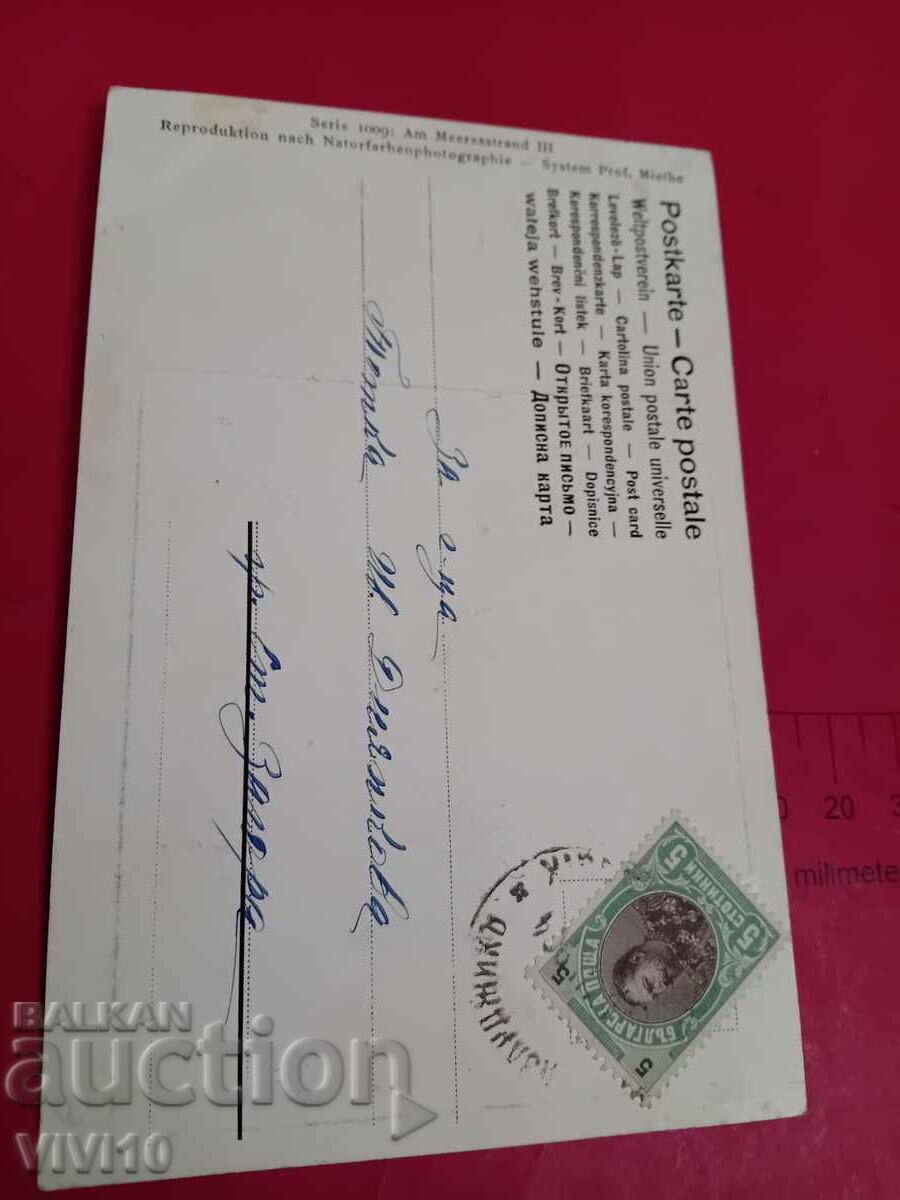 Serie 1009: Am Meeresstrand III
Reproduktion nach Naturfarbenphotographie — System Prof. Miethe
Postkarte — Carte postale
Weltpostverein — Union postale universelle
Levelező-Lap — Cartolina postale — Post card
Korrespondenzkarte — Karta korespondencyjna —
Korespondenční listek — Briefkaart — Dopisnice
Brefkort — Brev-Kort — Открытое письмо —
wateja wehstule — Дописна карта
За г-ца
Тенка Ив.
гр. Ст. Загора
5 СТОТИНКИ 5
БЪЛГАРСКА ПОЩА
5
5
20
milimete
BALKAN
auction
VIVI10